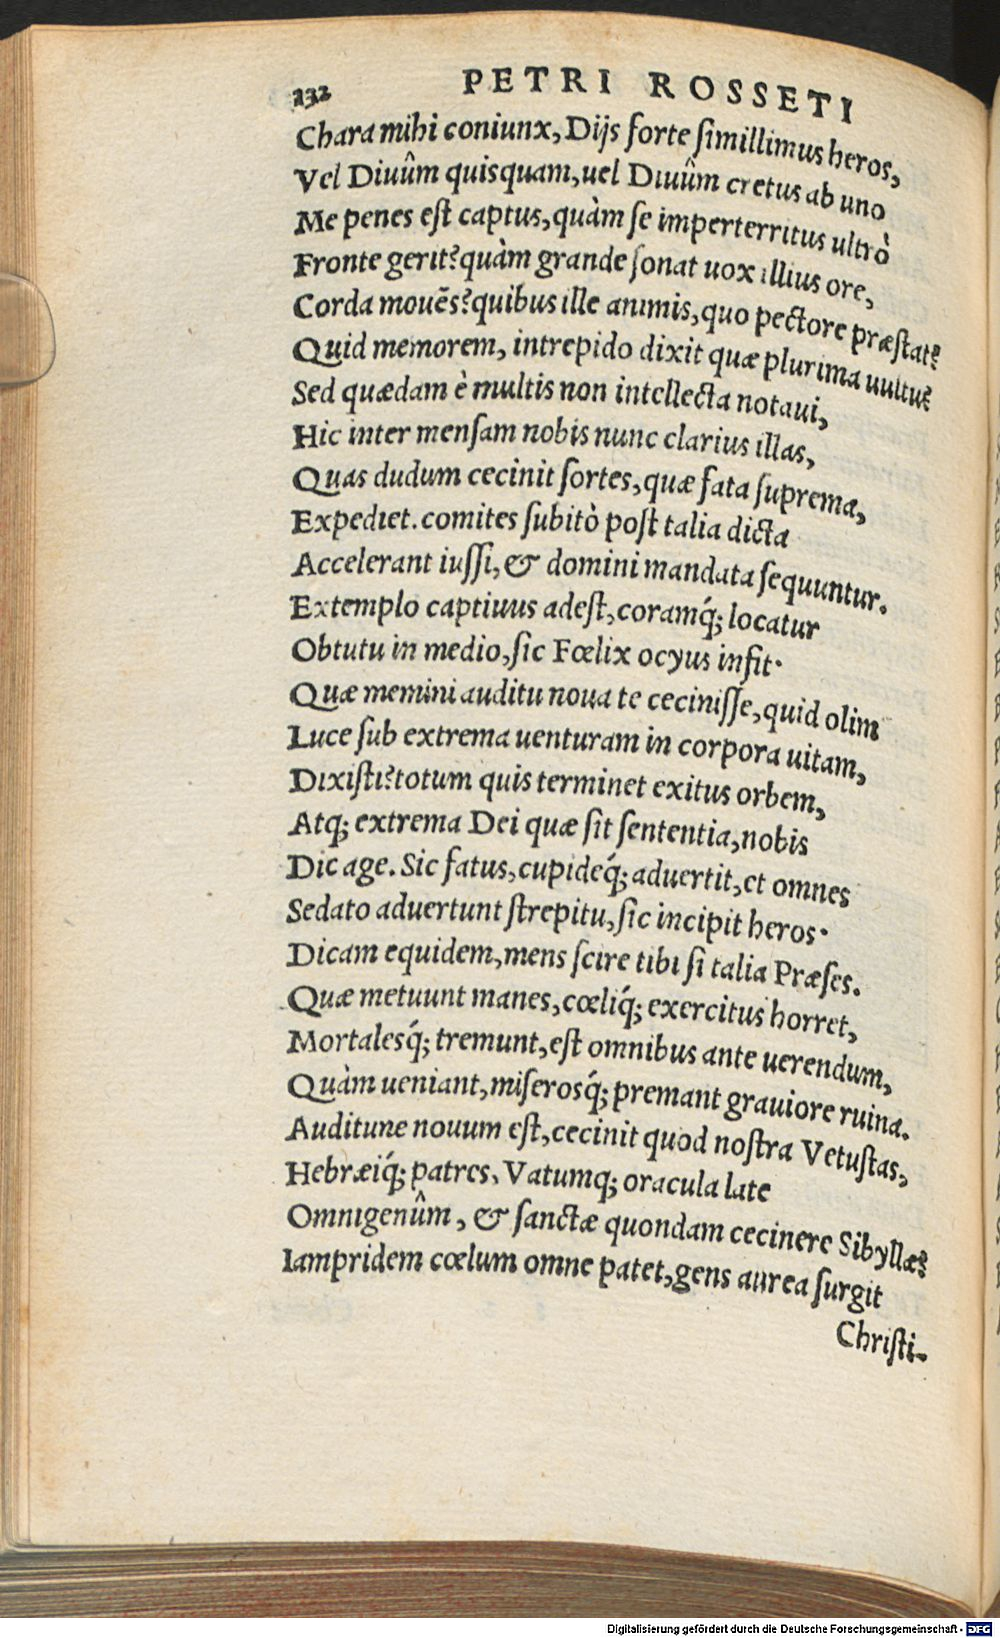 132 PETRI ROSSETI
Chara mihi coniunx, Dijs forte simillimus heros,
Vel Diuûm quisquam, uel Diuûm cretus ab uno
Me penes est captus, quàm se imperterritus ultrò
Fronte gerit? quàm grande sonat uox illius ore,
Corda mouẽs? quibus ille animis, quo pectore præstat?
Quid memorem, intrepido dixit quæ plurima uultu?
Sed quædam è multis non intellecta notaui,
Hic inter mensam nobis nunc clarius illas,
Quas dudum cecinit sortes, quæ fata suprema,
Expediet. comites subitò post talia dicta
Accelerant iussi, & domini mandata sequuntur.
Extemplo captiuus adest, coramq́; locatur
Obtutu in medio, sic Fœlix ocyus infit.
Quæ memini auditu noua te cecinisse, quid olim
Luce sub extrema uenturam in corpora uitam,
Dixisti? totum quis terminet exitus orbem,
Atq; extrema Dei quæ sit sententia, nobis
Dic age. Sic fatus, cupideq́; aduertit, et omnes
Sedato aduertunt strepitu, sic incipit heros.
Dicam equidem, mens scire tibi si talia Præses.
Quæ metuunt manes, cœliq́; exercitus horret,
Mortalesq́; tremunt, est omnibus ante uerendum,
Quàm ueniant, miserosq́; premant grauiore ruina.
Auditune nouum est, cecinit quod nostra Vetustas,
Hebræiq́; patres, Vatumq; oracula late
Omnigenûm, & sanctæ quondam cecinere Sibyllæ?
Iampridem cœlum omne patet, gens aurea surgit
Christi-
Digitalisierung gefördert durch die Deutsche Forschungsgemeinschaft - DFG